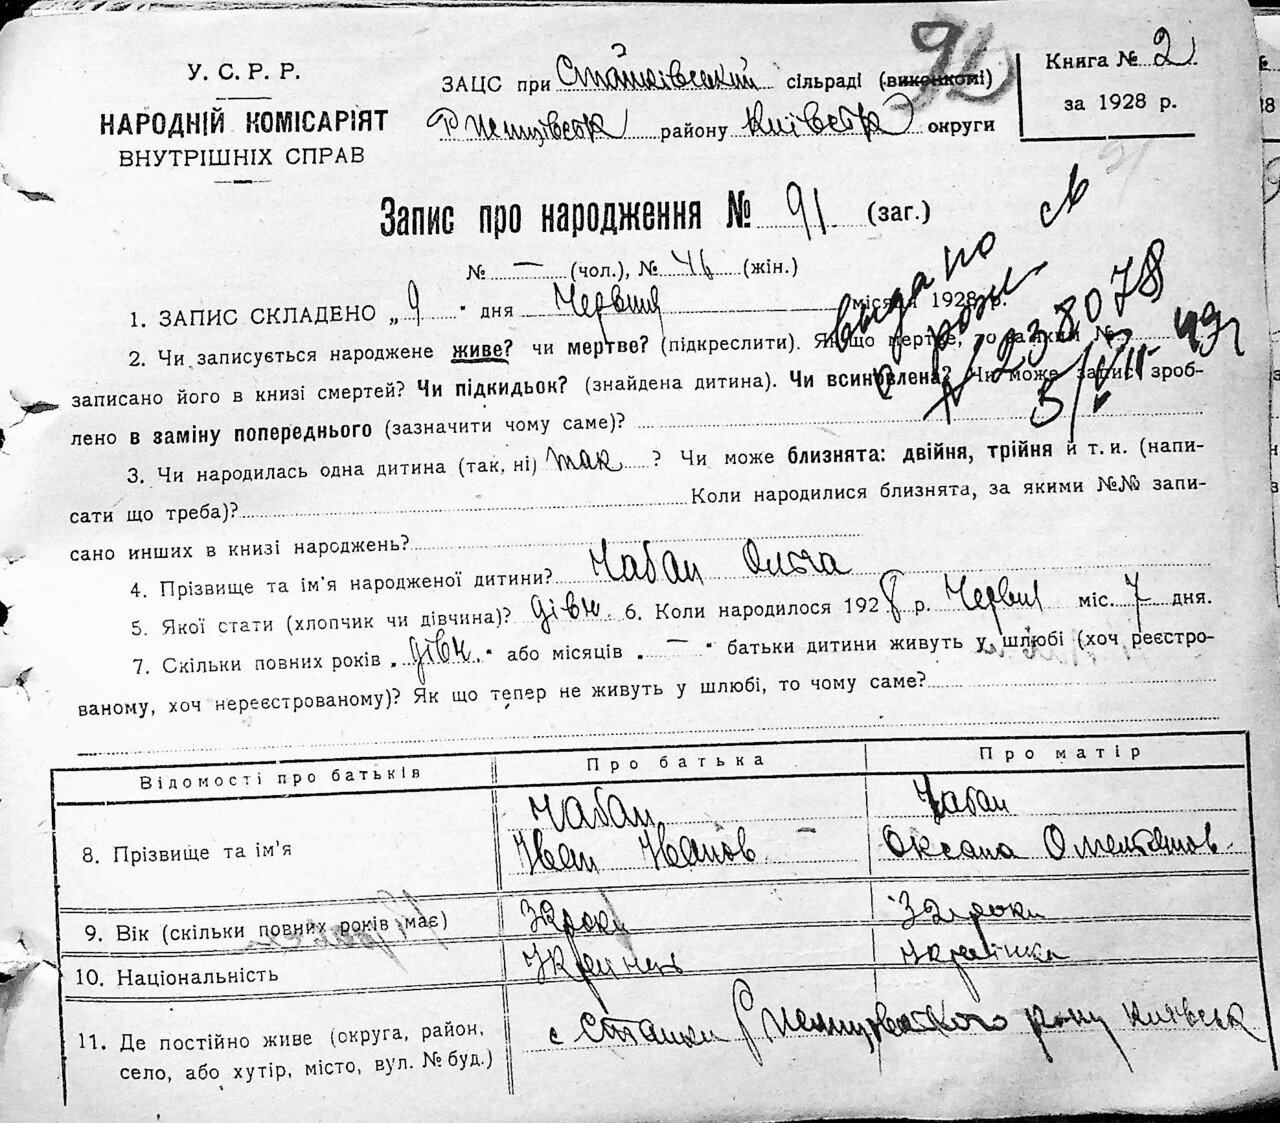 У. С. Р. Р.
НАРОДНІЙ КОМІСАРІЯТ
ВНУТРІШНІХ СПРАВ
92
ЗАЦС при сільраді (виконкомі)
району округи
Книга № 2
за 1928 р.
Запис про народження № 91. (заг.)
№ — (чол.), № 46 (жін.)
1. ЗАПИС СКЛАДЕНО „ 9 " дня Червня місяця 1928 р.
видано св
о рожд
238078
5/VII-49г
2. Чи записується народжене живе? чи мертве? (підкреслити). Як що мертве, то за яким №
записано його в книзі смертей? Чи підкидьок? (знайдена дитина). Чи всиновлена? Чи може запис зроб-
лено в заміну попереднього (зазначити чому саме)?
3. Чи народилась одна дитина (так, ні) так ? Чи може близнята: двійня, трійня й т. и. (напи-
сати що треба)? Коли народилися близнята, за якими №№ запи-
сано инших в книзі народжень?
4. Прізвище та ім'я народженої дитини? Чабан Ольга
5. Якої стати (хлопчик чи дівчина)? дівч. 6. Коли народилося 1928 р. Червня міс. 7 дня.
7. Скільки повних років „ дівч. " або місяців „ — " батьки дитини живуть у шлюбі (хоч реєстро-
ваному, хоч нереєстрованому)? Як що тепер не живуть у шлюбі, то чому саме?
Відомості про батьків Про батька Про матір
Чабан Чабан
8. Прізвище та ім'я Іван Іванов Оксана Омелянов.
9. Вік (скільки повних років має) 32 роки 32 роки
10. Національність Українець Українка
11. Де постійно живе (округа, район,
село, або хутір, місто, вул. № буд.)
с Стайки